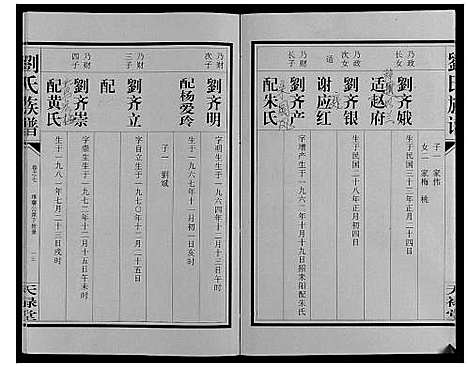 劉氏族譜
天禄堂
子一 家伟
女二 家梅 桃
乃政
长女
劉齐娥
生于民国三十三年正月二十四日
适赵府
乃政
次女
劉齐银
生于民国二十八年正月初四日
适
谢应红
乃财
长子
劉齐产
字增产生于一九六二年十一月十九日
配朱氏
乃财
次子
劉齐明
字明生生于一九六四年十二月十三日午时
配杨爱玲
生于一九六七年十一月初一日亥时
子一 劉斌
乃财
三子
劉齐立
字自立生于一九七〇年十二月二十五日
配
乃财
四子
劉齐崇
字崇生生于一九七二年十二月十五日午未时
配黄氏
生于一九八一年七月二十三日戌时
劉氏族譜
卷之七
一三
天禄堂